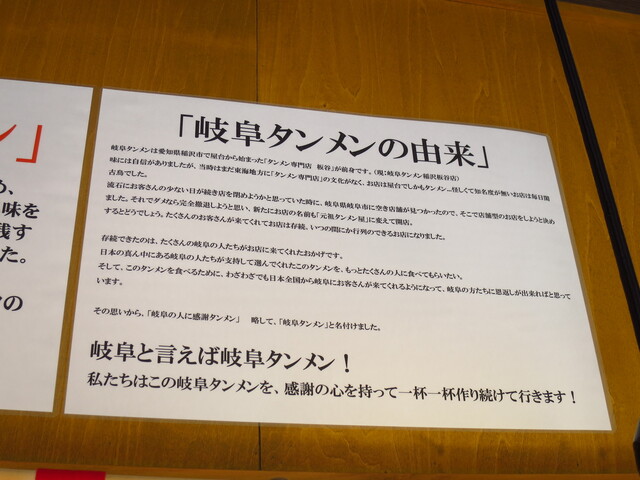 「岐阜タンメンの由来」
岐阜タンメンは愛知県稲沢市で屋台から始まった「タンメン専門店 板谷」が前身です。(現:岐阜タンメン稲沢板谷店)
味には自信がありましたが、当時はまだ東海地方に「タンメン専門店」の文化がなく、お店は屋台でしかもタンメン…怪しくて知名度が無いお店は毎日閑
古鳥でした。
流石にお客さんの少ない日が続き店を閉めようかと思っていた時に、岐阜県岐阜市に空き店舗が見つかったので、そこで店舗型のお店をしようと決め
ました。それでダメなら完全撤退しようと思い、新たにお店の名前も「元祖タンメン屋」に変えて開店。
するとどうでしょう。たくさんのお客さんが来てくれてお店は存続、いつの間にか行列のできるお店になりました。
存続できたのは、たくさんの岐阜の人たちがお店に来てくれたおかげです。
日本の真ん中にある岐阜の人たちが支持して選んでくれたこのタンメンを、もっとたくさんの人に食べてもらいたい。
そして、このタンメンを食べるために、わざわざでも日本全国から岐阜にお客さんが来てくれるようになって、岐阜の方たちに恩返しが出来ればと思って
います。
その思いから、「岐阜の人に感謝タンメン」 略して、「岐阜タンメン」と名付けました。
岐阜と言えば岐阜タンメン!
私たちはこの岐阜タンメンを、感謝の心を持って一杯一杯作り続けて行きます!
ン」
め、
味を
残す
た。
の